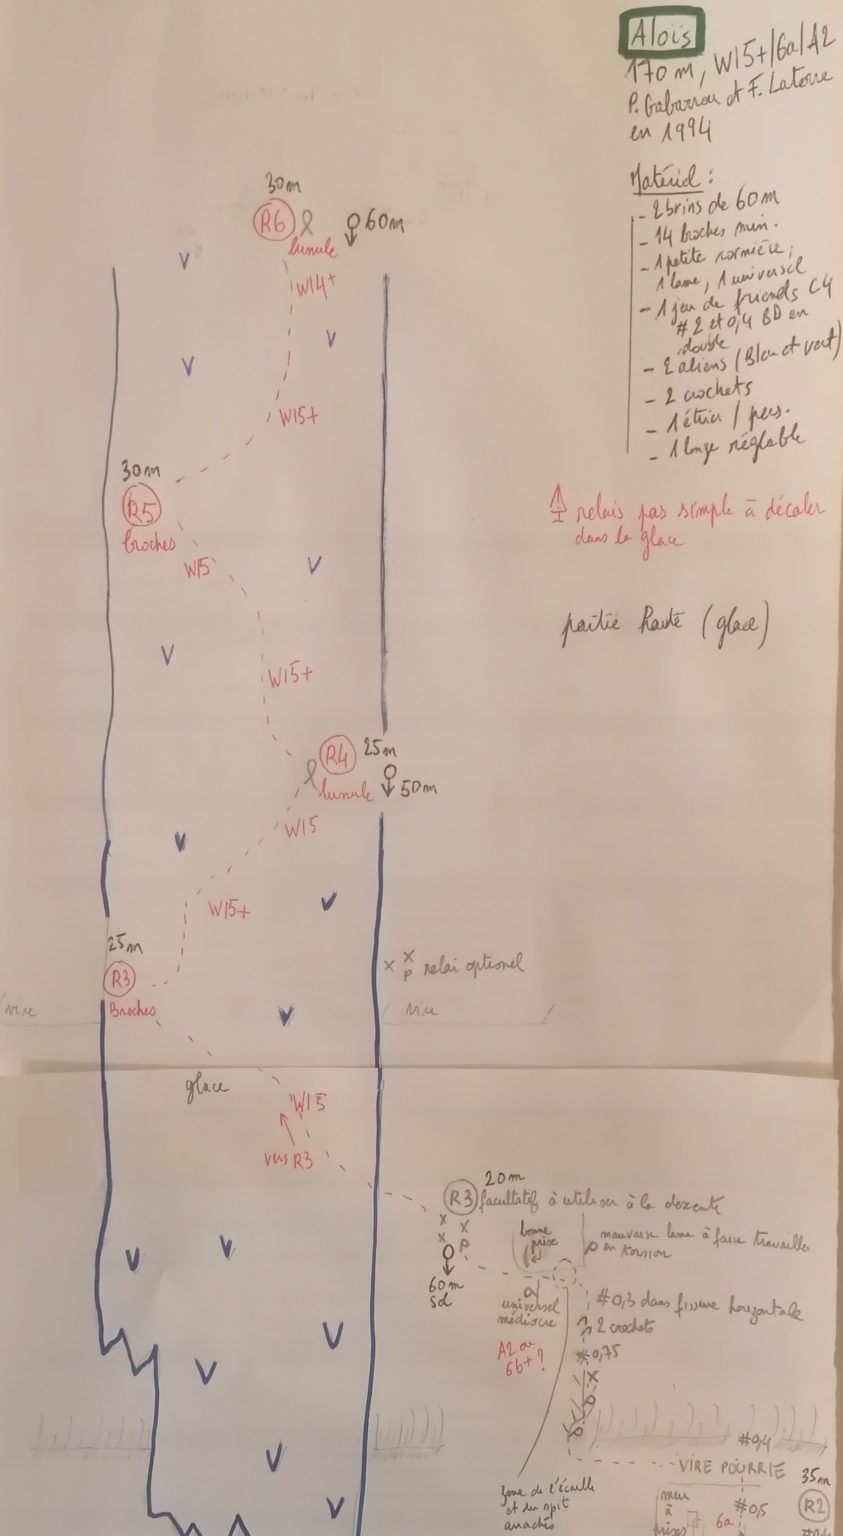 Aloïs
170 m, WI5+/6a/A2
P. Gabarrou et F. Latorre
en 1994
Matériel :
- 2 brins de 60 m
- 14 broches min.
- 1 petite cornière,
1 lame, 1 universel
- 1 jeu de friends C4
#2 et 0,4 BD en
double
- 2 aliens (Bleu et vert)
- 2 crochets
- 1 étrier / pers.
- 1 longe réglable
relais pas simple à décaler
dans la glace
partie haute (glace)
30m
R6
60m
lunule
WI4+
WI5+
30m
R5
broches
WI5
WI5+
R4
25m
lunule
50m
WI5
WI5+
25m
R3
Broches
x x
P relai optionel
vire
vire
glace
WI5
vers R3
20m
R3 facultatif à utiliser à la descente
x x
x P
60m
sol
bonne
prise
mauvaise lame à faire travailler
en torsion
universel
médiocre
#0,3 dans fissure horizontale
2 crochets
A2 ou
6b+?
#0,75
x
#0,4
VIRE POURRIE
35m
R2
zone de l'écaille
et du spit
arrachés
mur
à
prises
6a
#0,5